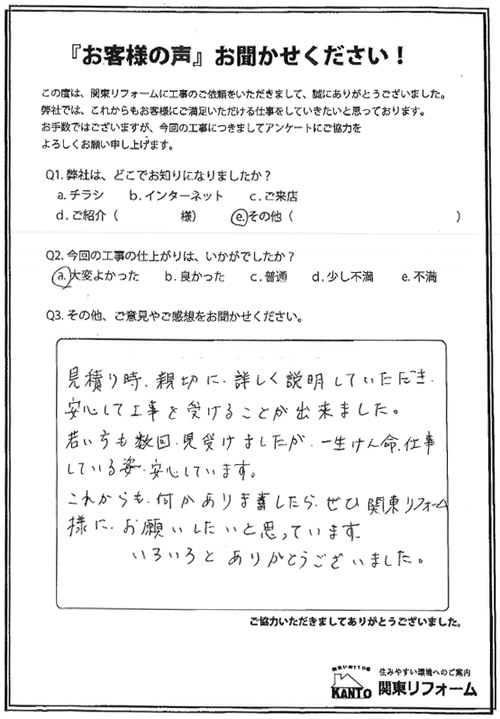 『お客様の声』お聞かせください!
この度は、関東リフォームに工事のご依頼をいただきまして、誠にありがとうございました。
弊社では、これからもお客様にご満足いただける仕事をしていきたいと思っております。
お手数ではございますが、今回の工事につきましてアンケートにご協力を
よろしくお願い申し上げます。
Q1. 弊社は、どこでお知りになりましたか?
a. チラシ b. インターネット c. ご来店
d. ご紹介( 様) e. その他( )
Q2. 今回の工事の仕上がりは、いかがでしたか?
a. 大変よかった b. 良かった c. 普通 d. 少し不満 e. 不満
Q3. その他、ご意見やご感想をお聞かせください。
見積り時、親切に、詳しく説明していただき、
安心して工事を受けることが出来ました。
若い方も数回、見受けましたが、一生けん命、仕事
している姿、安心しています。
これからも、何かありましたら、ぜひ関東リフォーム
様に、お願いしたいと思っています。
いろいろとありがとうございました。
ご協力いただきましてありがとうございました。
KANTO
住みやすい環境へのご案内
関東リフォーム